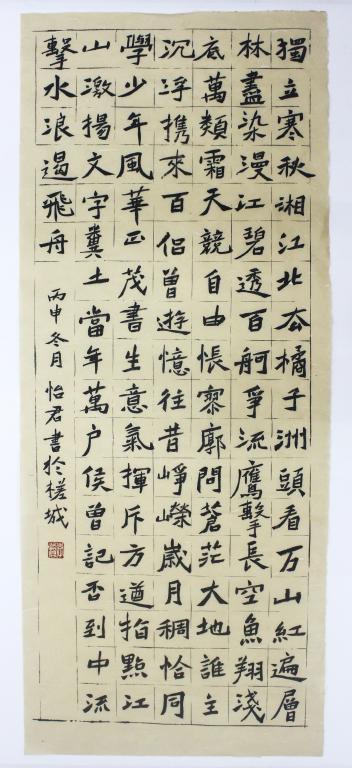 獨立寒秋湘江北去橘子洲頭看万山紅遍層
林盡染漫江碧透百舸爭流鷹擊長空魚翔淺
底萬類霜天競自由悵寥廓問蒼茫大地誰主
沉浮携來百侶曾遊憶往昔崢嶸歲月稠恰同
學少年風華正茂書生意氣揮斥方遒指點江
山激揚文字糞土當年萬户侯曾記否到中流
擊水浪遏飛舟
丙申冬月怡君書於槎城